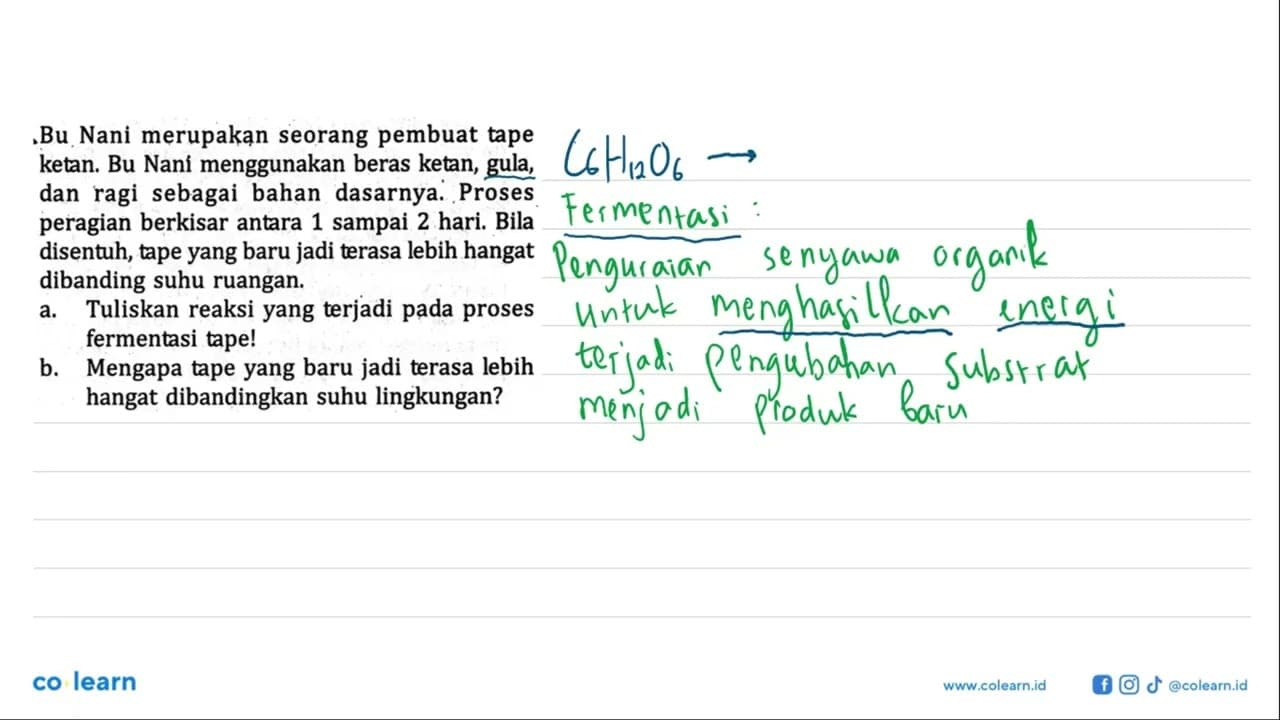 Bu Nani merupakan seorang pembuat tape
ketan. Bu Nani menggunakan beras ketan, gula,
dan ragi sebagai bahan dasarnya. Proses
peragian berkisar antara 1 sampai 2 hari. Bila
disentuh, tape yang baru jadi terasa lebih hangat
dibanding suhu ruangan.
a. Tuliskan reaksi yang terjadi pada proses
fermentasi tape!
b. Mengapa tape yang baru jadi terasa lebih
hangat dibandingkan suhu lingkungan?
C6H12O6 →
Fermentasi :
Penguraian senyawa organik
untuk menghasilkan energi
terjadi pengubahan substrat
menjadi produk baru
co learn
www.colearn.id
@colearn.id